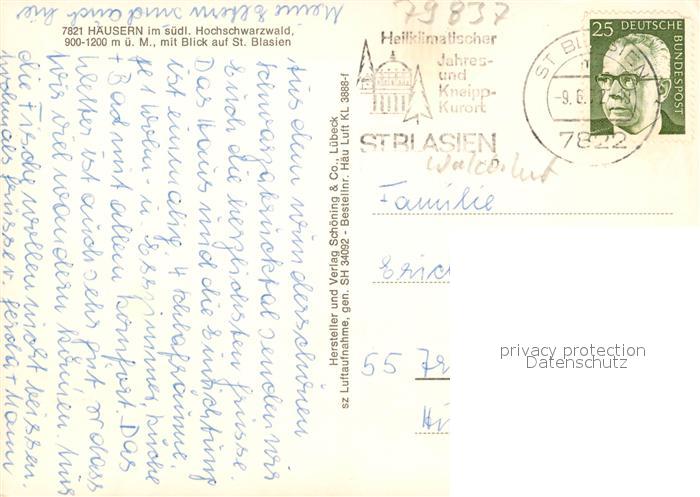 Meine Eltern sind auch hie
7821 HÄUSERN im südl. Hochschwarzwald,
900-1200 m ü. M., mit Blick auf St. Blasien
79837
Heilklimatischer
Jahres-
und
Kneipp-
Kurort
ST BLASIEN
ST BLASIEN
-9.6.
7822
25 DEUTSCHE
BUNDESPOST
Aus dem wunderschönen
Schwarzabrucktal senden wir
Euch die herzlichsten Grüsse.
Das Haus und die Einrichtung
ist einmalig. 4 Schlafräume,
Wohn- u Esszimmer, Küche
+ Bad mit allem Komfort. Das
Wetter ist auch sehr gut so dass
wir viel wandern können. Nur
die Fische wollen nicht beissen.
Gerda + Mann
Hersteller und Verlag Schöning & Co., Lübeck
sz Luftaufnahme, gen. SH 34092 - Bestellnr. Häu Luft KL 3888-f
Waldshut
Familie
Erich
55
privacy protection
Datenschutz